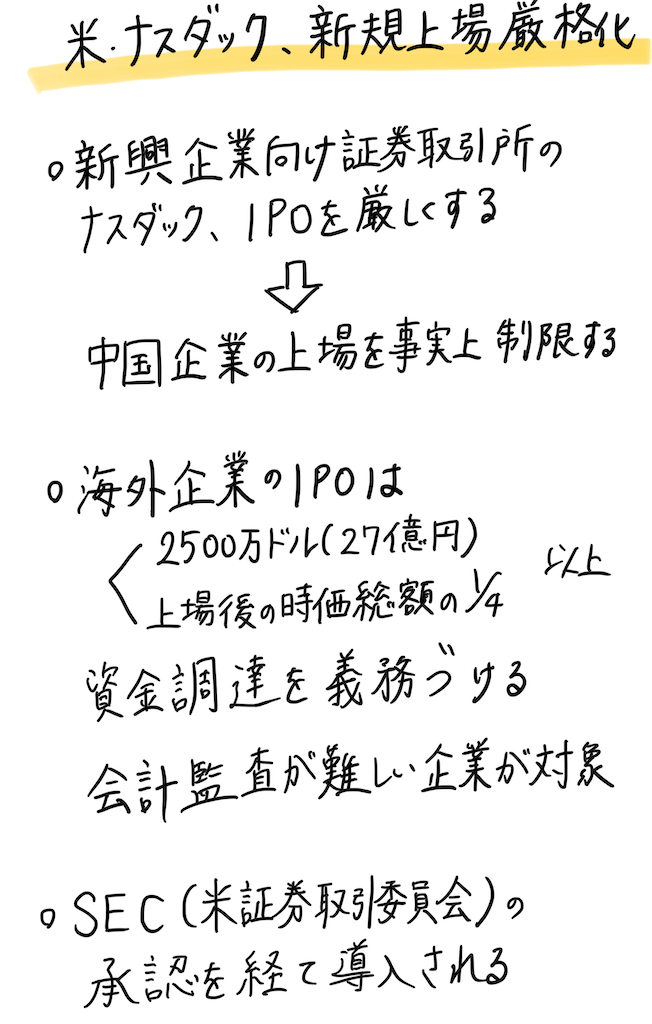 米・ナスダック、新規上場厳格化
○新興企業向け証券取引所の
ナスダック、IPOを厳しくする
⇩
中国企業の上場を事実上制限する
○海外企業のIPOは
2500万ドル(27億円)
以上
上場後の時価総額の1/4
資金調達を義務づける
会計監査が難しい企業が対象
○SEC(米証券取引委員会)の
承認を経て導入される